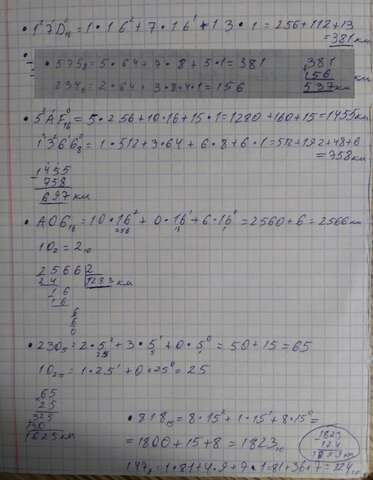 • 17D₁₆ = 1·16² + 7·16¹ + 13·1 = 256 + 112 + 13
= 381 км
• 575₈ = 5·64 + 7·8 + 5·1 = 381
381
156
537 км
234₈ = 2·64 + 3·8+4·1 = 156
• 5AF₁₆ = 5·256 + 10·16 + 15·1 = 1280 + 160 + 15 = 1455 км
1366₈ = 1·512 + 3·64 + 6·8 + 6·1 = 512 + 192 + 48 + 6
= 758 км
1455
758
697 км
• A06₁₆ = 10·16² + 0·16¹ + 6·16¹ = 2560 + 6 = 2566 км
10₂ = 2₁₀
2566 2
24 1283 км
16
16
6
6
0
• 230₅ = 2·5² + 3·5¹ + 0·5⁰ = 50 + 15 = 65
10₂₅ = 1·25¹ + 0·25⁰ = 25
65
25
325
130
1625 км
• 818₁₅ = 8·15² + 1·15¹ + 8·15⁰ =
= 1800 + 15 + 8 = 1823₁₀
1823
124
147₉ = 1·81 + 4·9 + 7·1 = 81 + 36 + 7 = 124₁₀